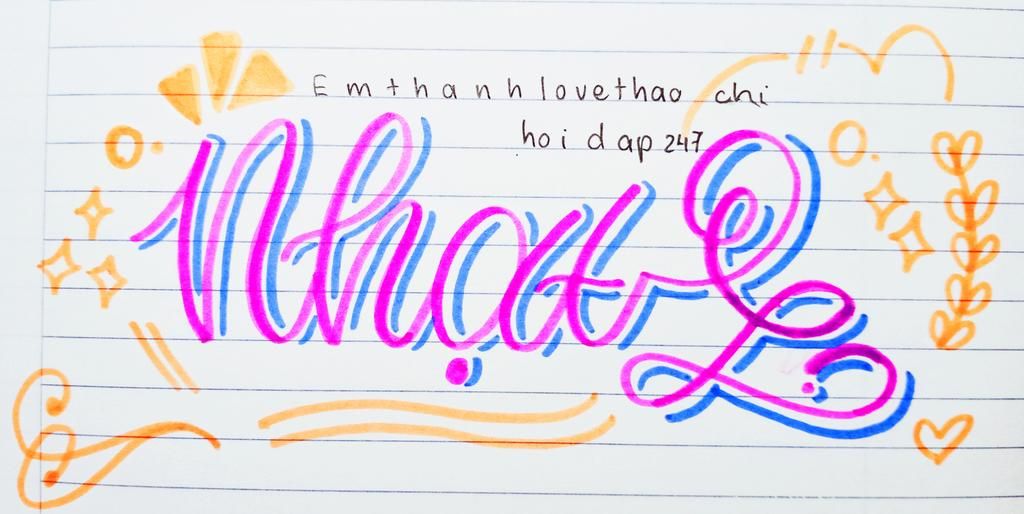 Emthanhlovethao chi
hoidap247
Nhạt L